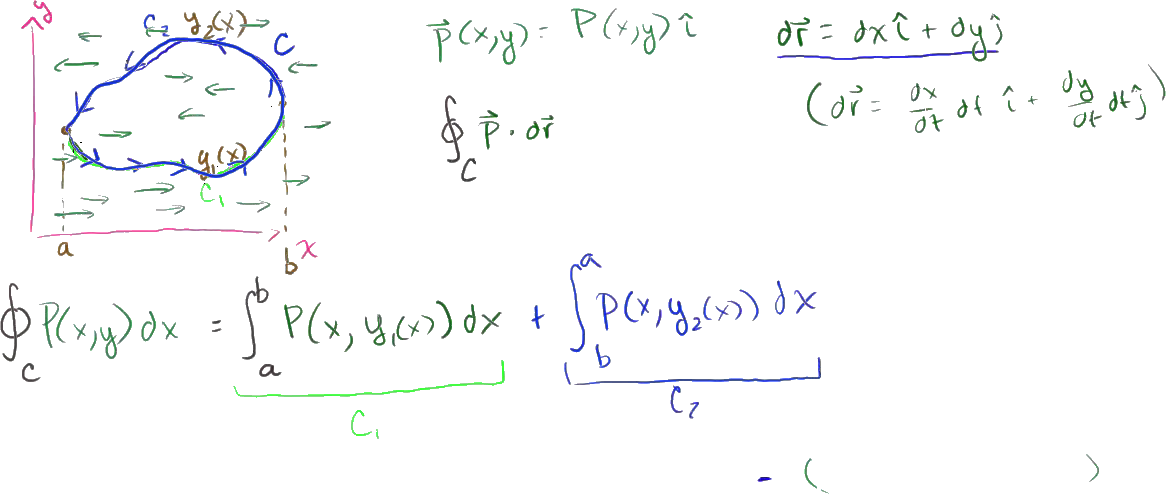 y
C₂ y₂(x) C
y₁(x)
C₁
a b x
P⃗(x,y) = P(x,y) î
∮_C P⃗ · dr⃗
dr⃗ = dx î + dy ĵ
(dr⃗ = dx/dt dt î + dy/dt dt ĵ)
∮_C P(x,y) dx = ∫_a^b P(x, y₁(x)) dx + ∫_b^a P(x, y₂(x)) dx
C₁ C₂
- ( )